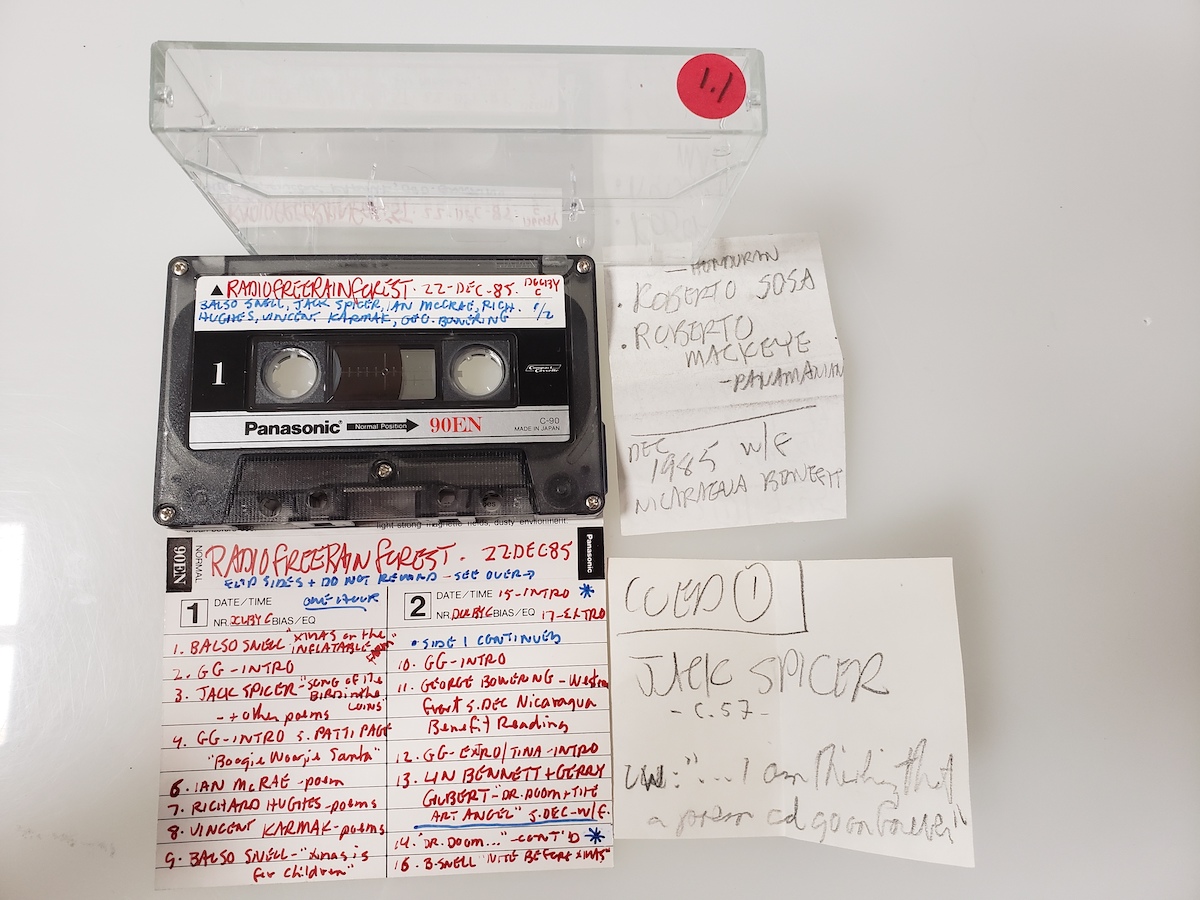 1.1
▲RADIOFREERAINFOREST. 22-DEC-85. DOLBY C
BALSO SNELL, JACK SPICER, IAN McCRAE, RICH.
HUGHES, VINCENT KARMAK, GEO. BOWERING 1/2
1
Compact Cassette
Panasonic Normal Position 90EN
C-90
MADE IN JAPAN
- HONDURAN
. ROBERTO SOSA
. ROBERTO
MACKEYE
-PANAMANIAN
DEC
1985 W/F
NICARAGUA BENEFIT
light-strong magnetic fields, dusty environment.
90EN
NORMAL
RADIOFREERAINFOREST. 22DEC85
Panasonic
FLIP SIDES + DO NOT REWIND - SEE OVER→
1 DATE/TIME ONE HOUR
NR. DOLBY C BIAS/EQ
1. BALSO SNELL "XMAS on the
INFLATABLE FARM"
2. GG-INTRO
3. JACK SPICER-"SONG OF the
BIRD in the
LOINS"
-+ other poems
4. GG-INTRO 5. PATTI PAGE
"Boogie Woogie Santa"
6. IAN McRAE-poem
7. RICHARD HUGHES-poems
8. VINCENT KARMAK-poems
9. BALSO SNELL-"Xmas is
for children"
2 DATE/TIME 15-INTRO *
NR. DOLBY C BIAS/EQ 17-EXTRO
• SIDE 1 CONTINUED
10. GG-INTRO
11. GEORGE BOWERING-Western
Front 5.DEC Nicaragua
Benefit Reading
12. GG-EXTRO/TINA-INTRO
13. LIN BENNETT+GERRY
GILBERT-"DR. DOOM+THE
ART ANGEL" 5.DEC-W/F.
14. "DR. DOOM..."-CONT'D *
16. B. SNELL "NITE BEFORE XMAS"
CUED 1
JACK SPICER
- C.57 -
"... I am thinking that
a poem cd go on forever"